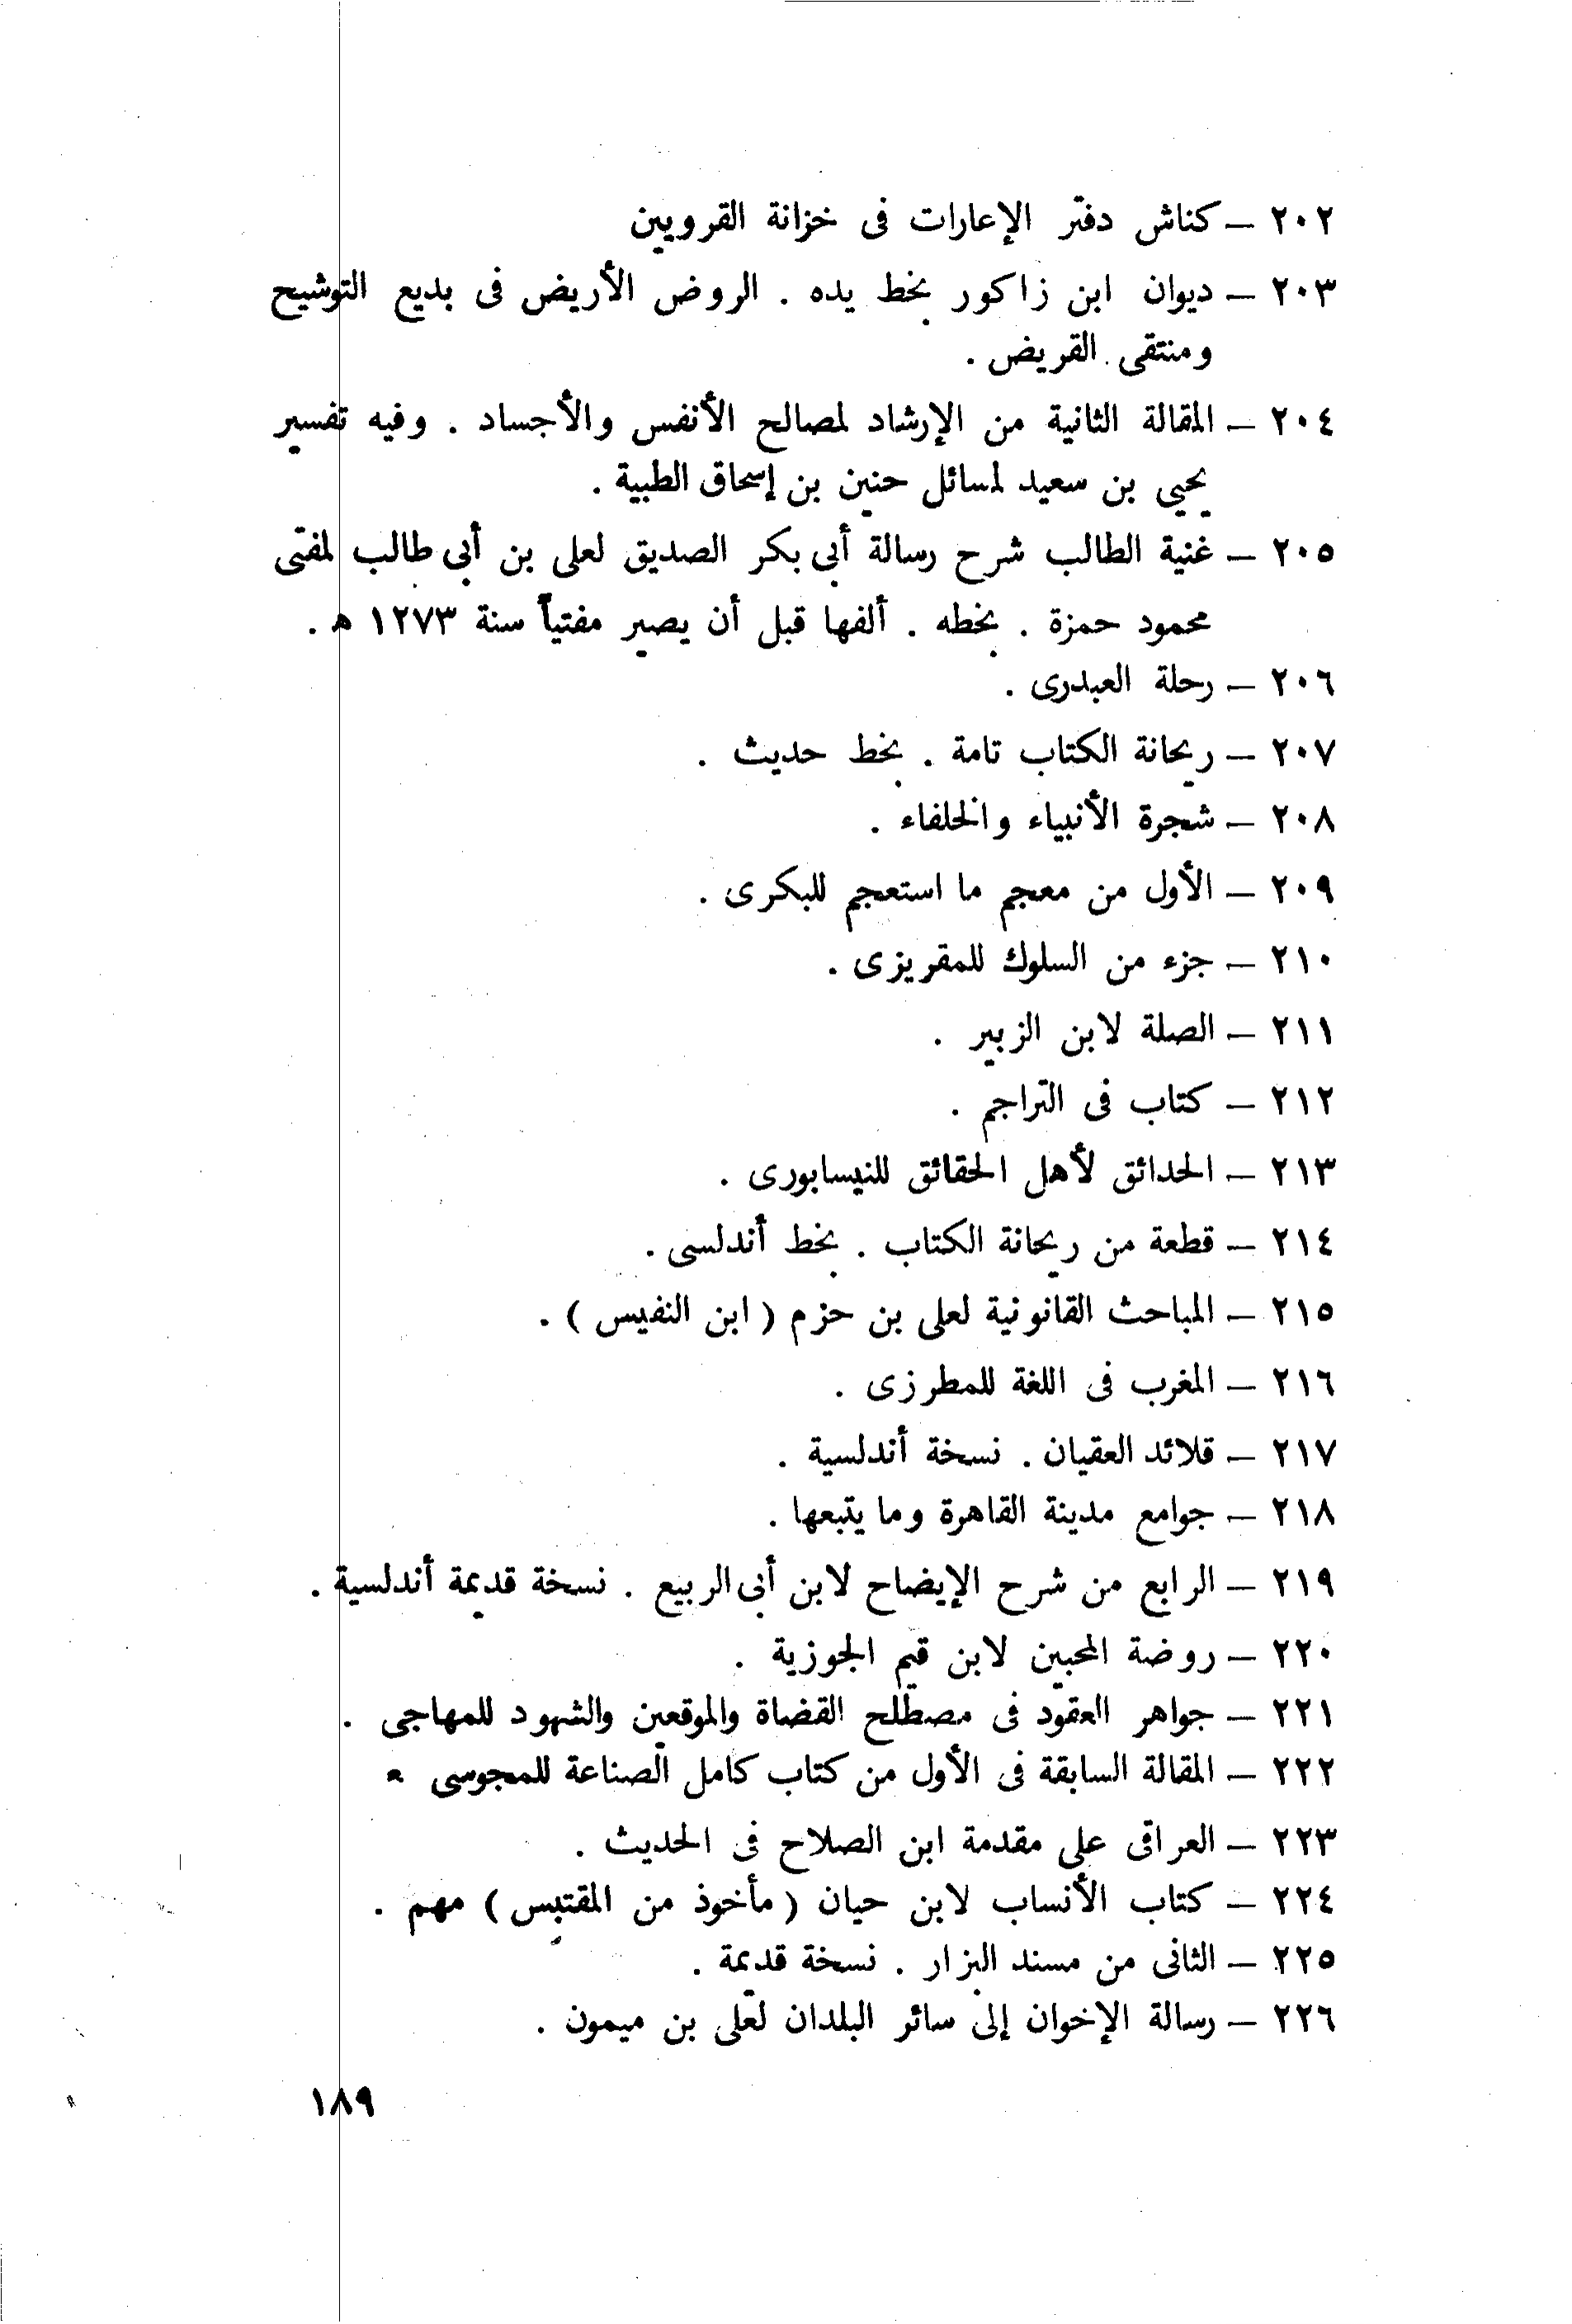 ٢٠٢ – كناش دفتر الإعارات فى خزانة القرويين
٢٠٣ – ديوان ابن زاكور بخط يده . الروض الأريض فى بديع التوشيح
ومنتقى القريض .
٢٠٤ – المقالة الثانية من الإرشاد لمصالح الأنفس والأجساد . وفيه تفسير
يحيي بن سعيد لمسائل حنين بن إسحاق الطبية .
٢٠٥ – غنية الطالب شرح رسالة أبى بكر الصديق لعلى بن أبى طالب لمفتى
محمود حمزة . بخطه . ألفها قبل أن يصير مفتياً سنة ١٢٧٣ ه .
٢٠٦ – رحلة العبدرى .
٢٠٧ – ريحانة الكتاب تامة . بخط حديث .
٢٠٨ – شجرة الأنبياء والخلفاء .
٢٠٩ – الأول من معجم ما استعجم للبكرى .
٢١٠ – جزء من السلوك للمقريزى .
٢١١ – الصلة لابن الزبير .
٢١٢ – كتاب فى التراجم .
٢١٣ – الحدائق لأهل الحقائق للنيسابورى .
٢١٤ – قطعة من ريحانة الكتاب . بخط أندلسى .
٢١٥ – المباحث القانونية لعلى بن حزم ( ابن النفيس ) .
٢١٦ – المغرب فى اللغة للمطرزى .
٢١٧ – قلائد العقيان . نسخة أندلسية .
٢١٨ – جوامع مدينة القاهرة وما يتبعها .
٢١٩ – الرابع من شرح الإيضاح لابن أبى الربيع . نسخة قديمة أندلسية .
٢٢٠ – روضة المحبين لابن قيم الجوزية .
٢٢١ – جواهر العقود فى مصطلح القضاة والموقعين والشهود للمهاجى .
٢٢٢ – المقالة السابقة فى الأول من كتاب كامل الصناعة للمجوسى
٢٢٣ – العراقى على مقدمة ابن الصلاح فى الحديث .
٢٢٤ – كتاب الأنساب لابن حيان ( مأخوذ من المقتبس ) مهم .
٢٢٥ – الثانى من مسند البزار . نسخة قديمة .
٢٢٦ – رسالة الإخوان إلى سائر البلدان لعلى بن ميمون .
١٨٩